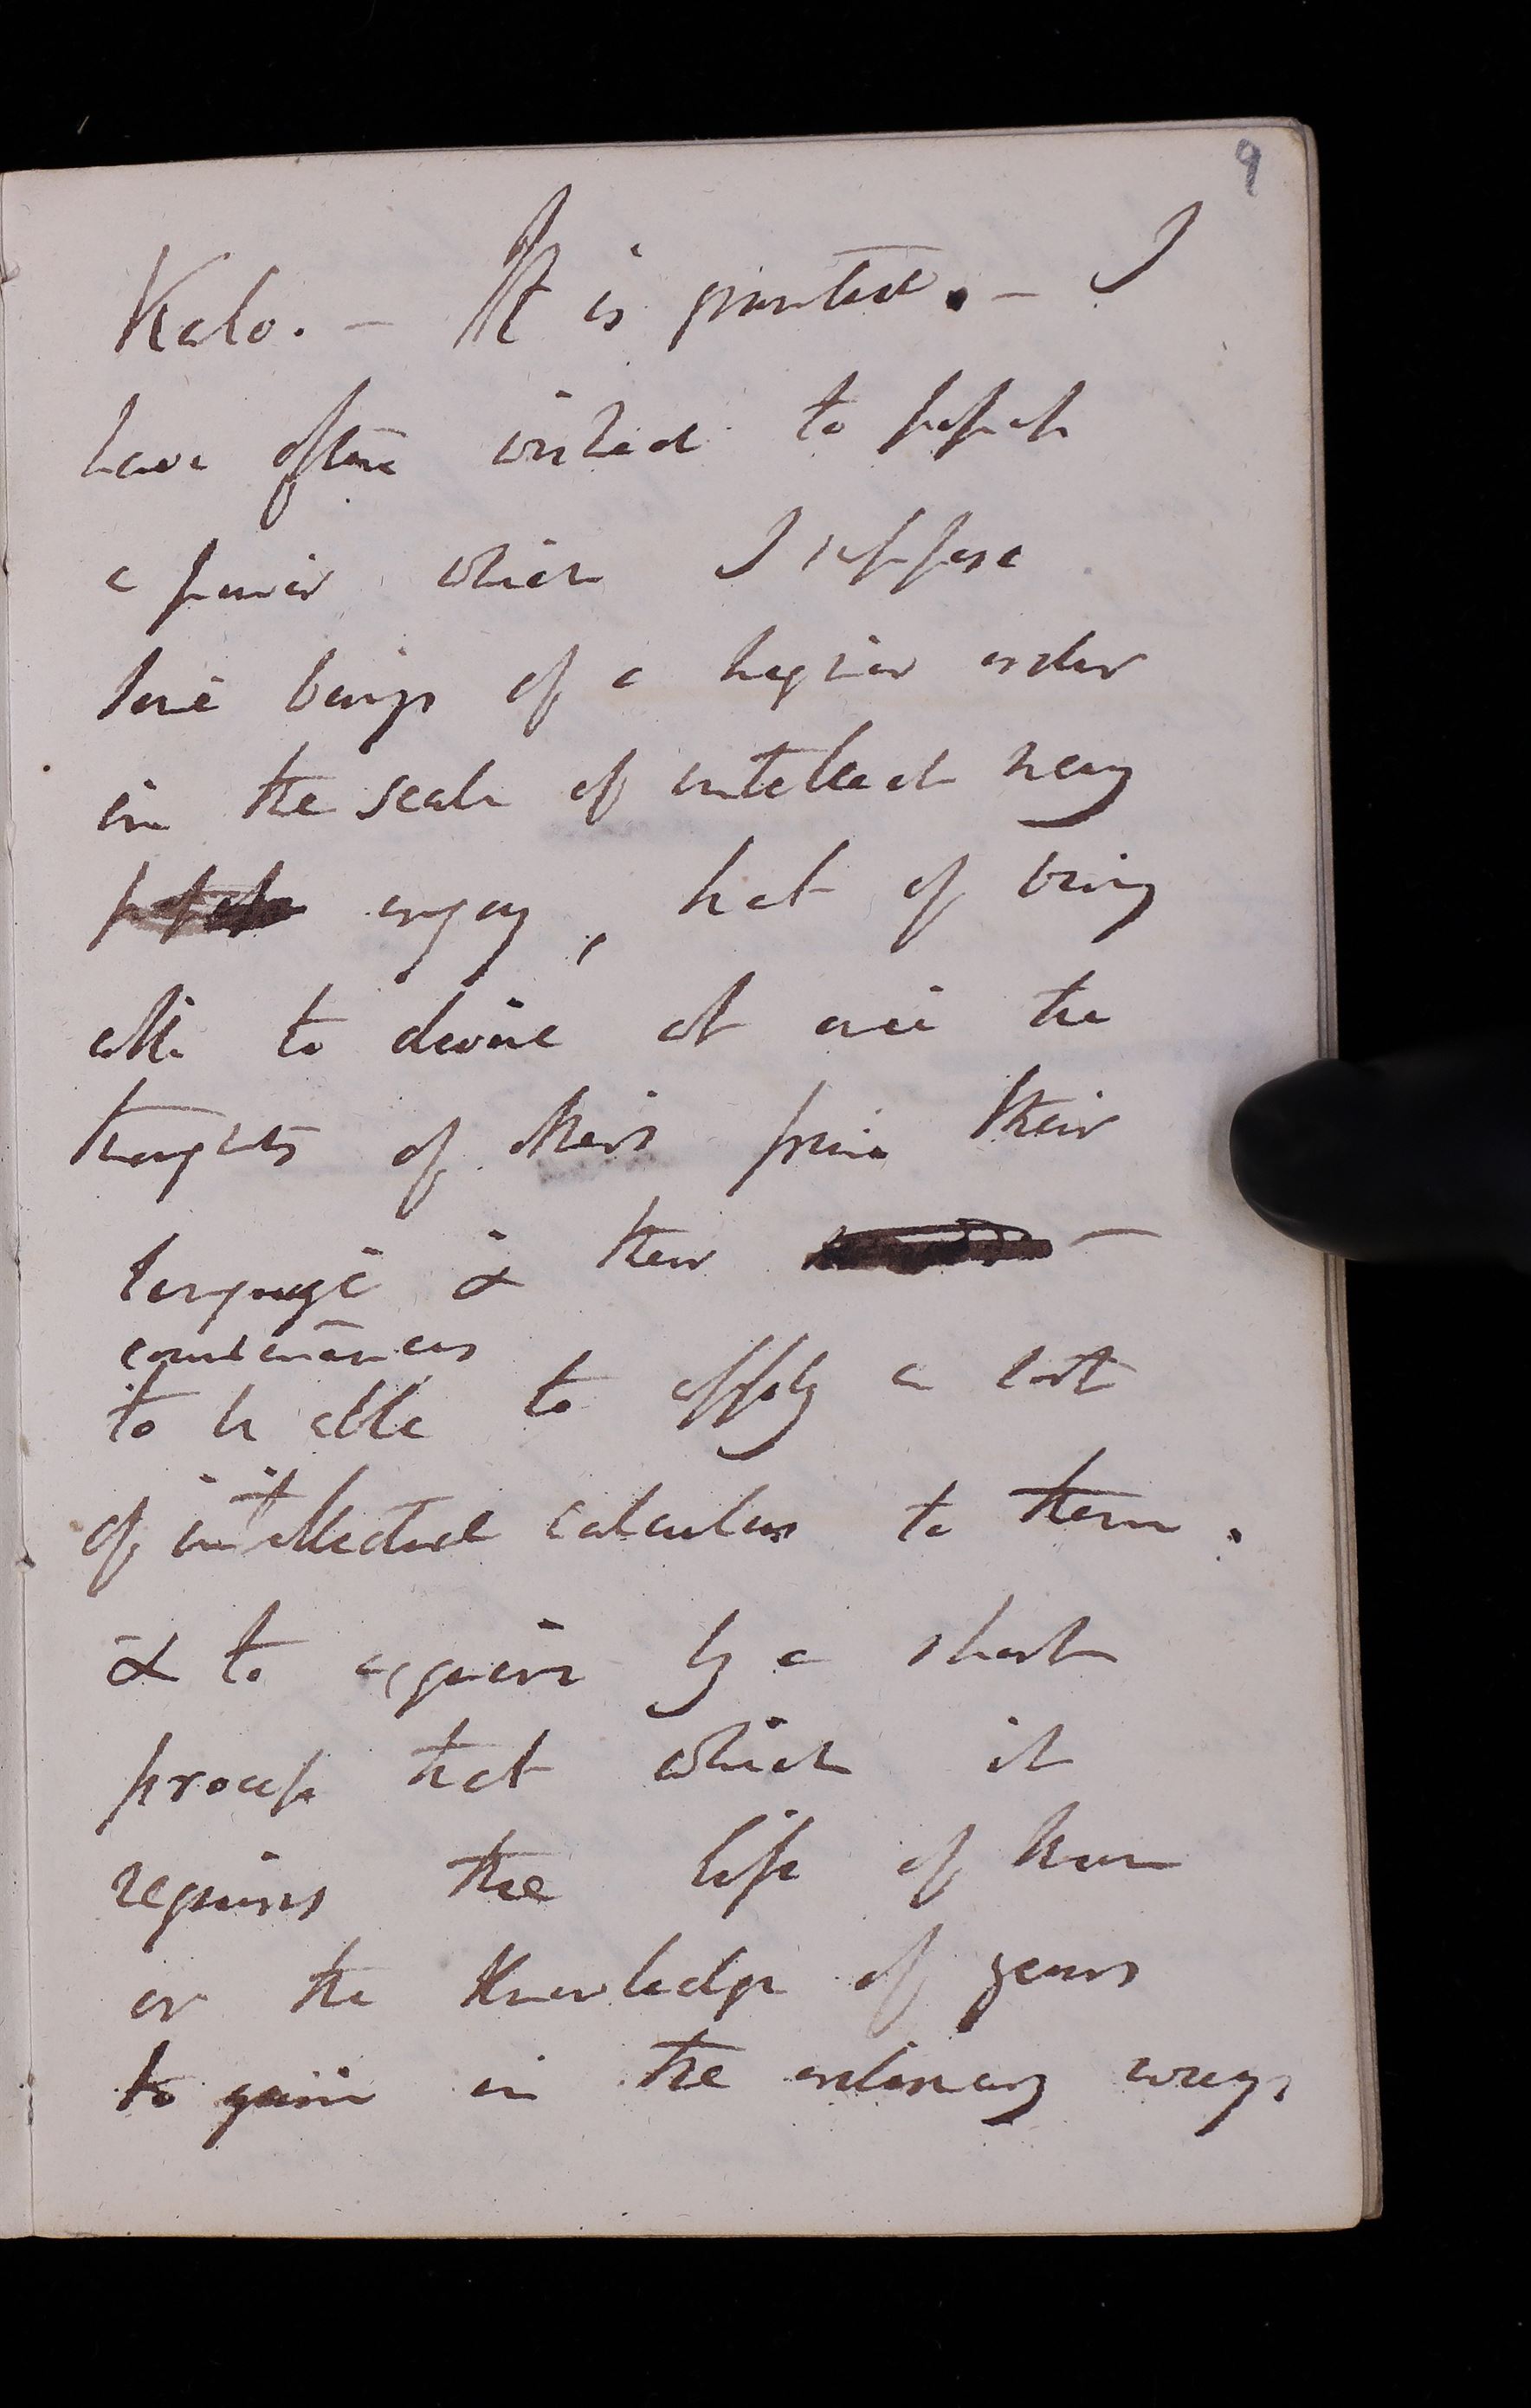 9
Kalo. – It is granted. – I
have often wished to possess
a power which I suppose
some beings of a higher order
in the scale of intellect may
enjoy, that of being
able to devine at once the
thoughts of others from their
language & their –
countenances
to be able to apply a sort
of intellectual calculus to them.
& to acquire by a short
process that which it
requires the life of
or the knowledge of years
to gain in the ordinary ways